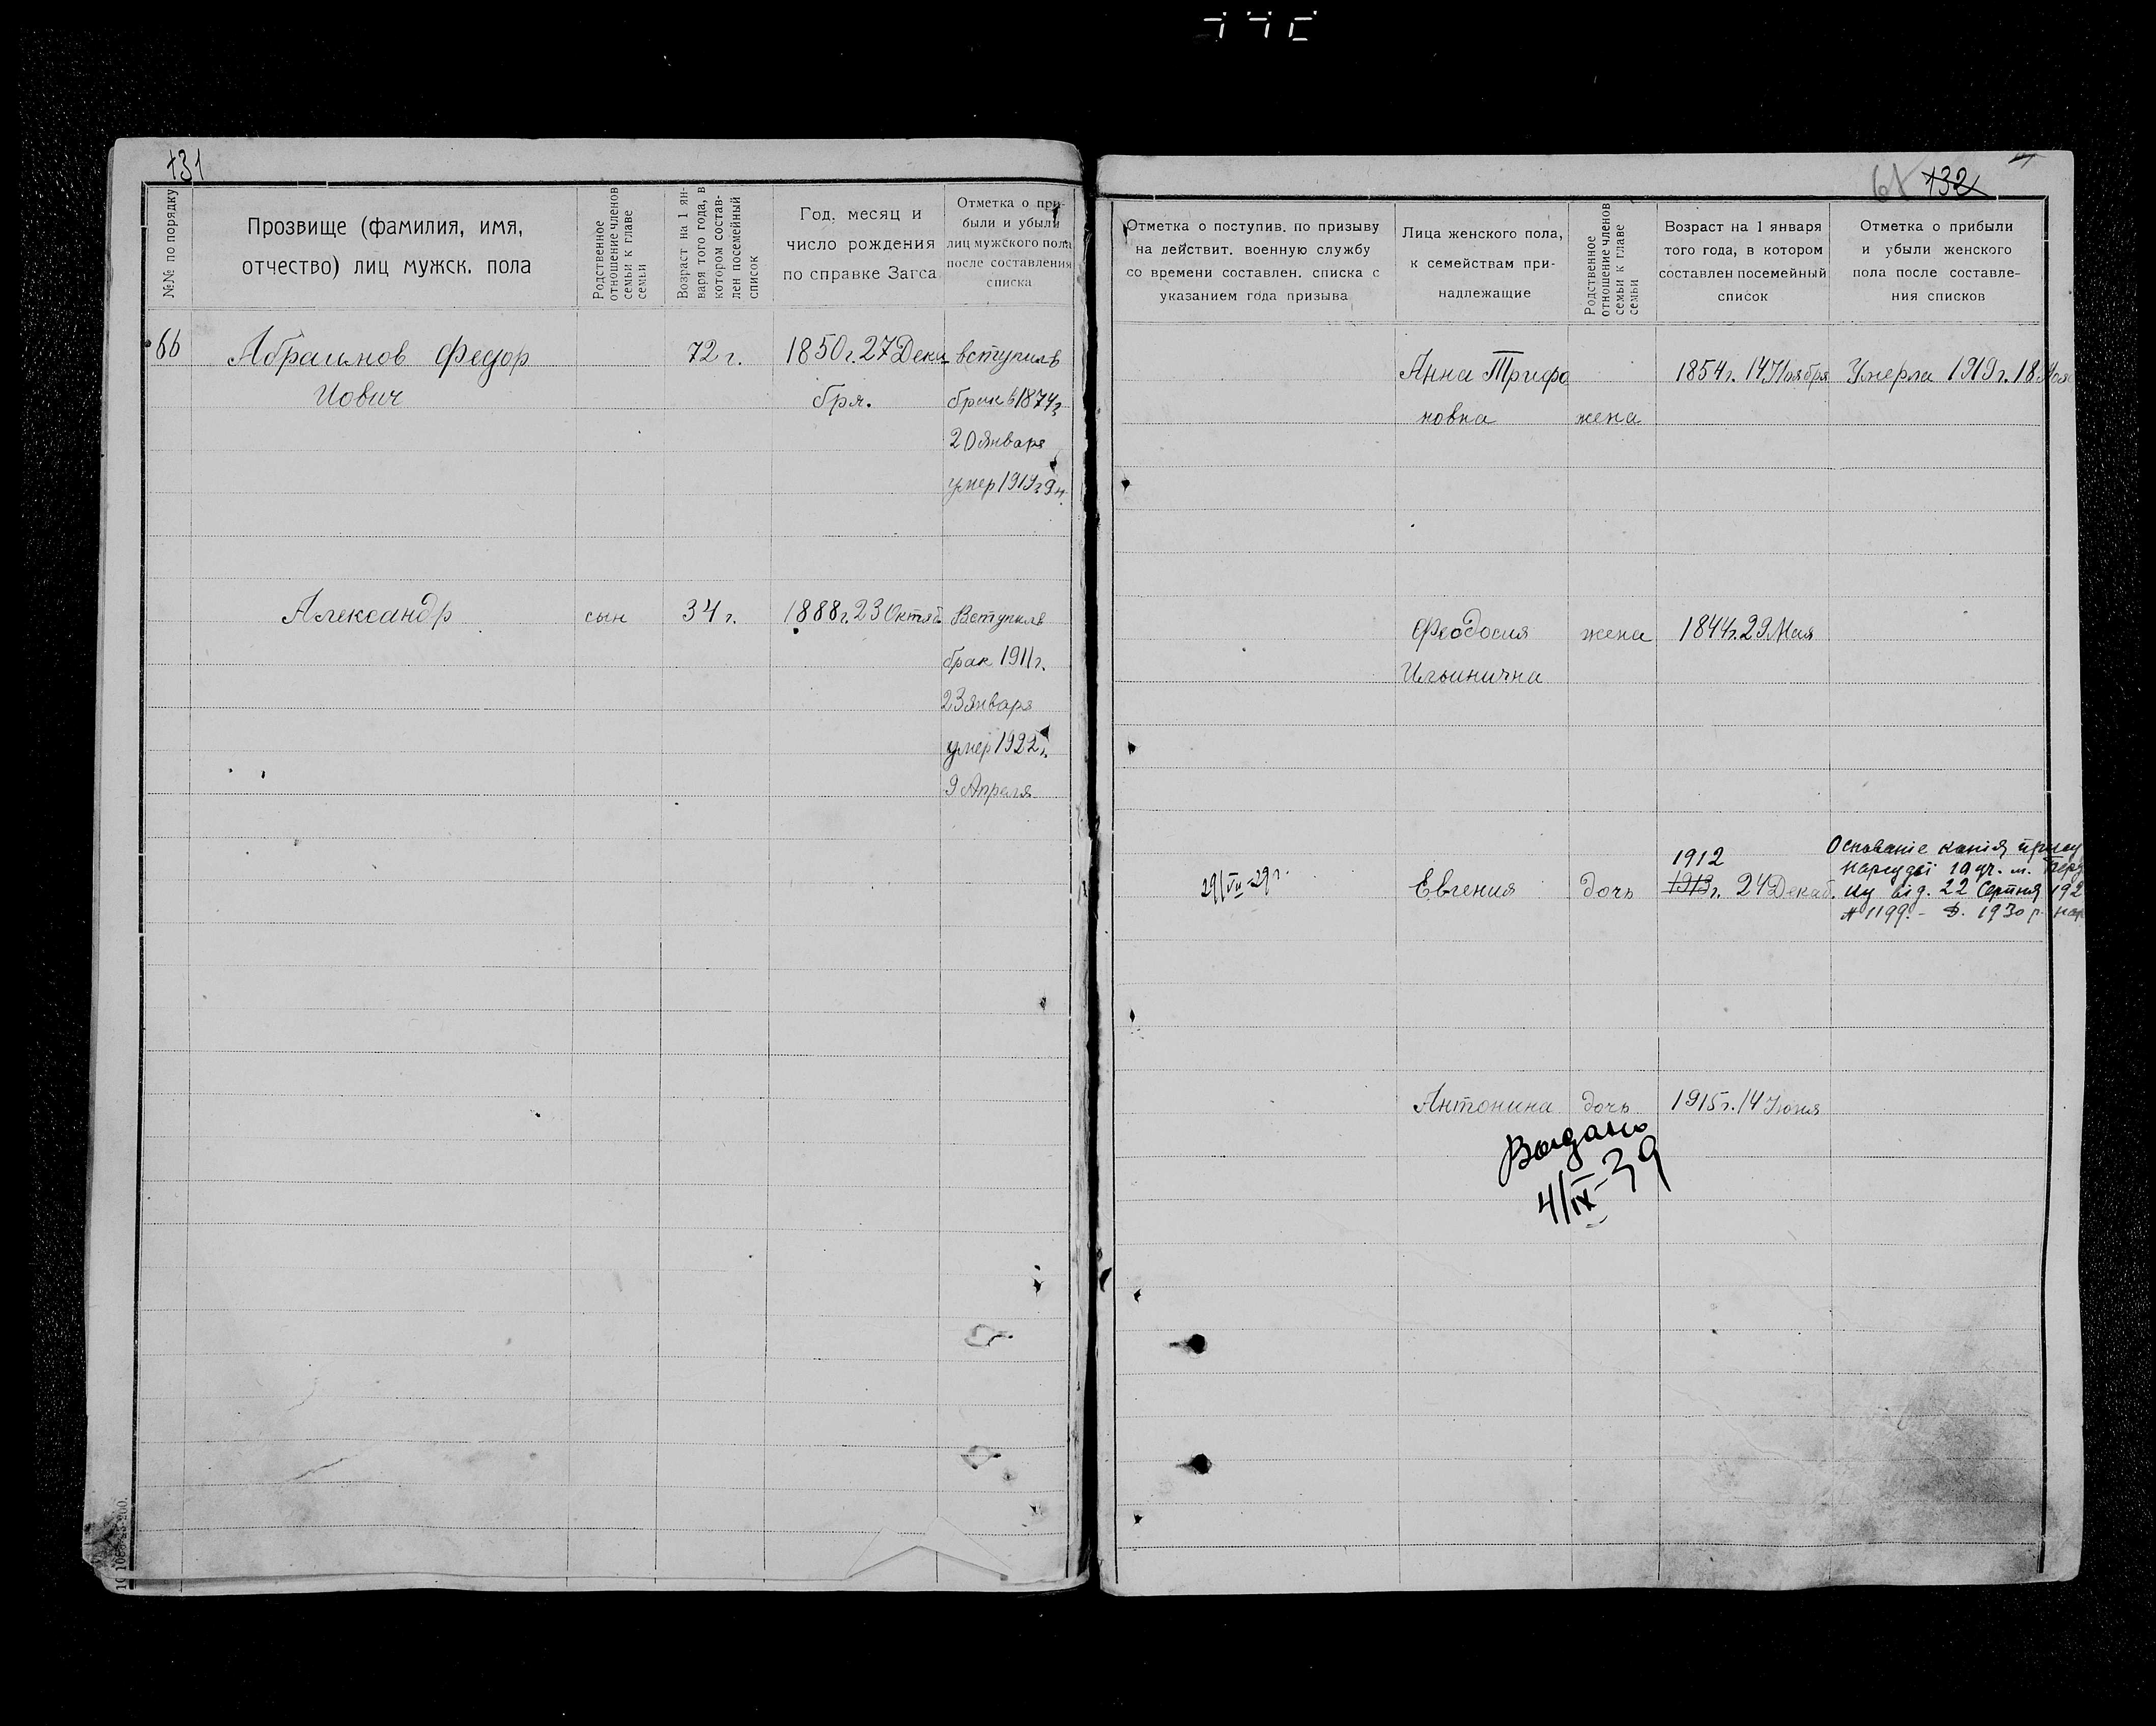 131
№№ по порядку
Прозвище (фамилия, имя,
отчество) лиц мужск. пола
Родственное
отношение членов
семьи к главе
семьи
Возраст на 1 ян-
варя того года, в
котором состав-
лен посемейный
список
Год, месяц и
число рождения
по справке Загса
Отметка о при-
были и убыли
лиц мужского пола
после составления
списка
66
Абраимов Федор
Иович
72 г.
1850 г. 27 Дека-
бря.
вступил в
брак в 1874 г
20 Января
умер 1919 г 9
Александр
сын
34 г.
1888 г. 23 Октяб
Вступил в
брак 1911 г.
23 Января
умер 1922 г.
9 Апреля
61 132
Отметка о поступив. по призыву
на действит. военную службу
со времени составлен. списка с
указанием года призыва
Лица женского пола,
к семействам при-
надлежащие
Родственное
отношение членов
семьи к главе
семьи
Возраст на 1 января
того года, в котором
составлен посемейный
список
Отметка о прибыли
и убыли женского
пола после составле-
ния списков
Анна Трифо
новна
жена
1854 г. 14 Ноября
Умерла 1919 г. 18 Ноя
Феодосия
Ильинична
жена
1844 г. 29 Мая
29/VII-29 г.
Евгения
дочь
1912
1913 г. 24 Декаб.
Основание копія
нарсудді 10 уч. м.
ку від. 22 Серпня 192
№ 1199. - 1930 р.
Антонина
дочь
1915 г. 14 Июня
Выдано
4/IX-39